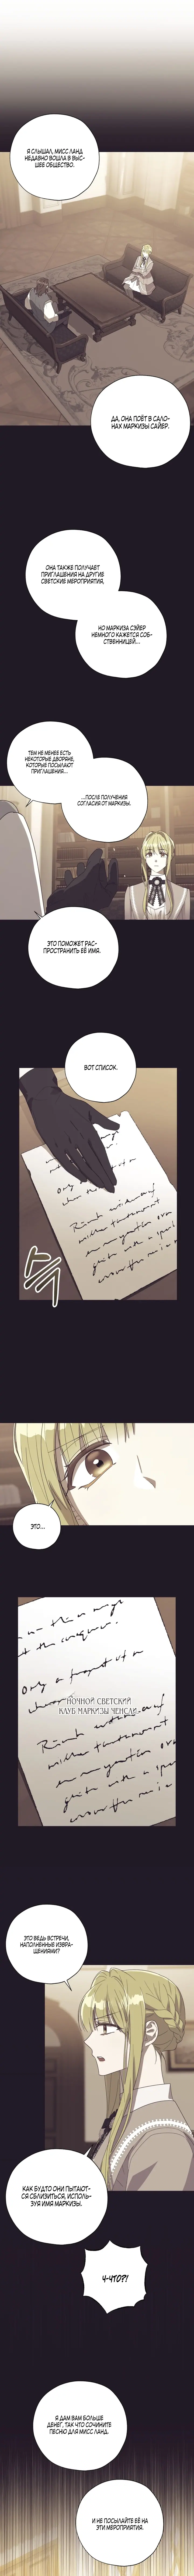 Я СЛЫШАЛ, МИСС ЛАНД
НЕДАВНО ВОШЛА В ВЫС-
ШЕЕ ОБЩЕСТВО.
ДА, ОНА ПОЁТ В САЛО-
НАХ МАРКИЗЫ САЙЕР.
ОНА ТАКЖЕ ПОЛУЧАЕТ
ПРИГЛАШЕНИЯ НА ДРУГИЕ
СВЕТСКИЕ МЕРОПРИЯТИЯ,
НО МАРКИЗА СЭЙЕР
НЕМНОГО КАЖЕТСЯ СОБ-
СТВЕННИЦЕЙ...
ТЕМ НЕ МЕНЕЕ ЕСТЬ
НЕКОТОРЫЕ ДВОРЯНЕ,
КОТОРЫЕ ПОСЫЛАЮТ
ПРИГЛАШЕНИЯ...
...ПОСЛЕ ПОЛУЧЕНИЯ
СОГЛАСИЯ ОТ МАРКИЗЫ.
ЭТО ПОМОЖЕТ РАС-
ПРОСТРАНИТЬ ЕЁ ИМЯ.
ВОТ СПИСОК.
ЭТО...
НОЧНОЙ СВЕТСКИЙ
КЛУБ МАРКИЗЫ ЧЕНСЛИ
ЭТО ВЕДЬ ВСТРЕЧИ,
НАПОЛНЕННЫЕ ИЗВРА-
ЩЕНИЯМИ?
КАК БУДТО ОНИ ПЫТАЮТ-
СЯ СБЛИЗИТЬСЯ, ИСПОЛЬ-
ЗУЯ ИМЯ МАРКИЗЫ.
Ч-ЧТО?!
Я ДАМ ВАМ БОЛЬШЕ
ДЕНЕГ, ТАК ЧТО СОЧИНИТЕ
ПЕСНЮ ДЛЯ МИСС ЛАНД.
И НЕ ПОСЫЛАЙТЕ ЕЁ НА
ЭТИ МЕРОПРИЯТИЯ.